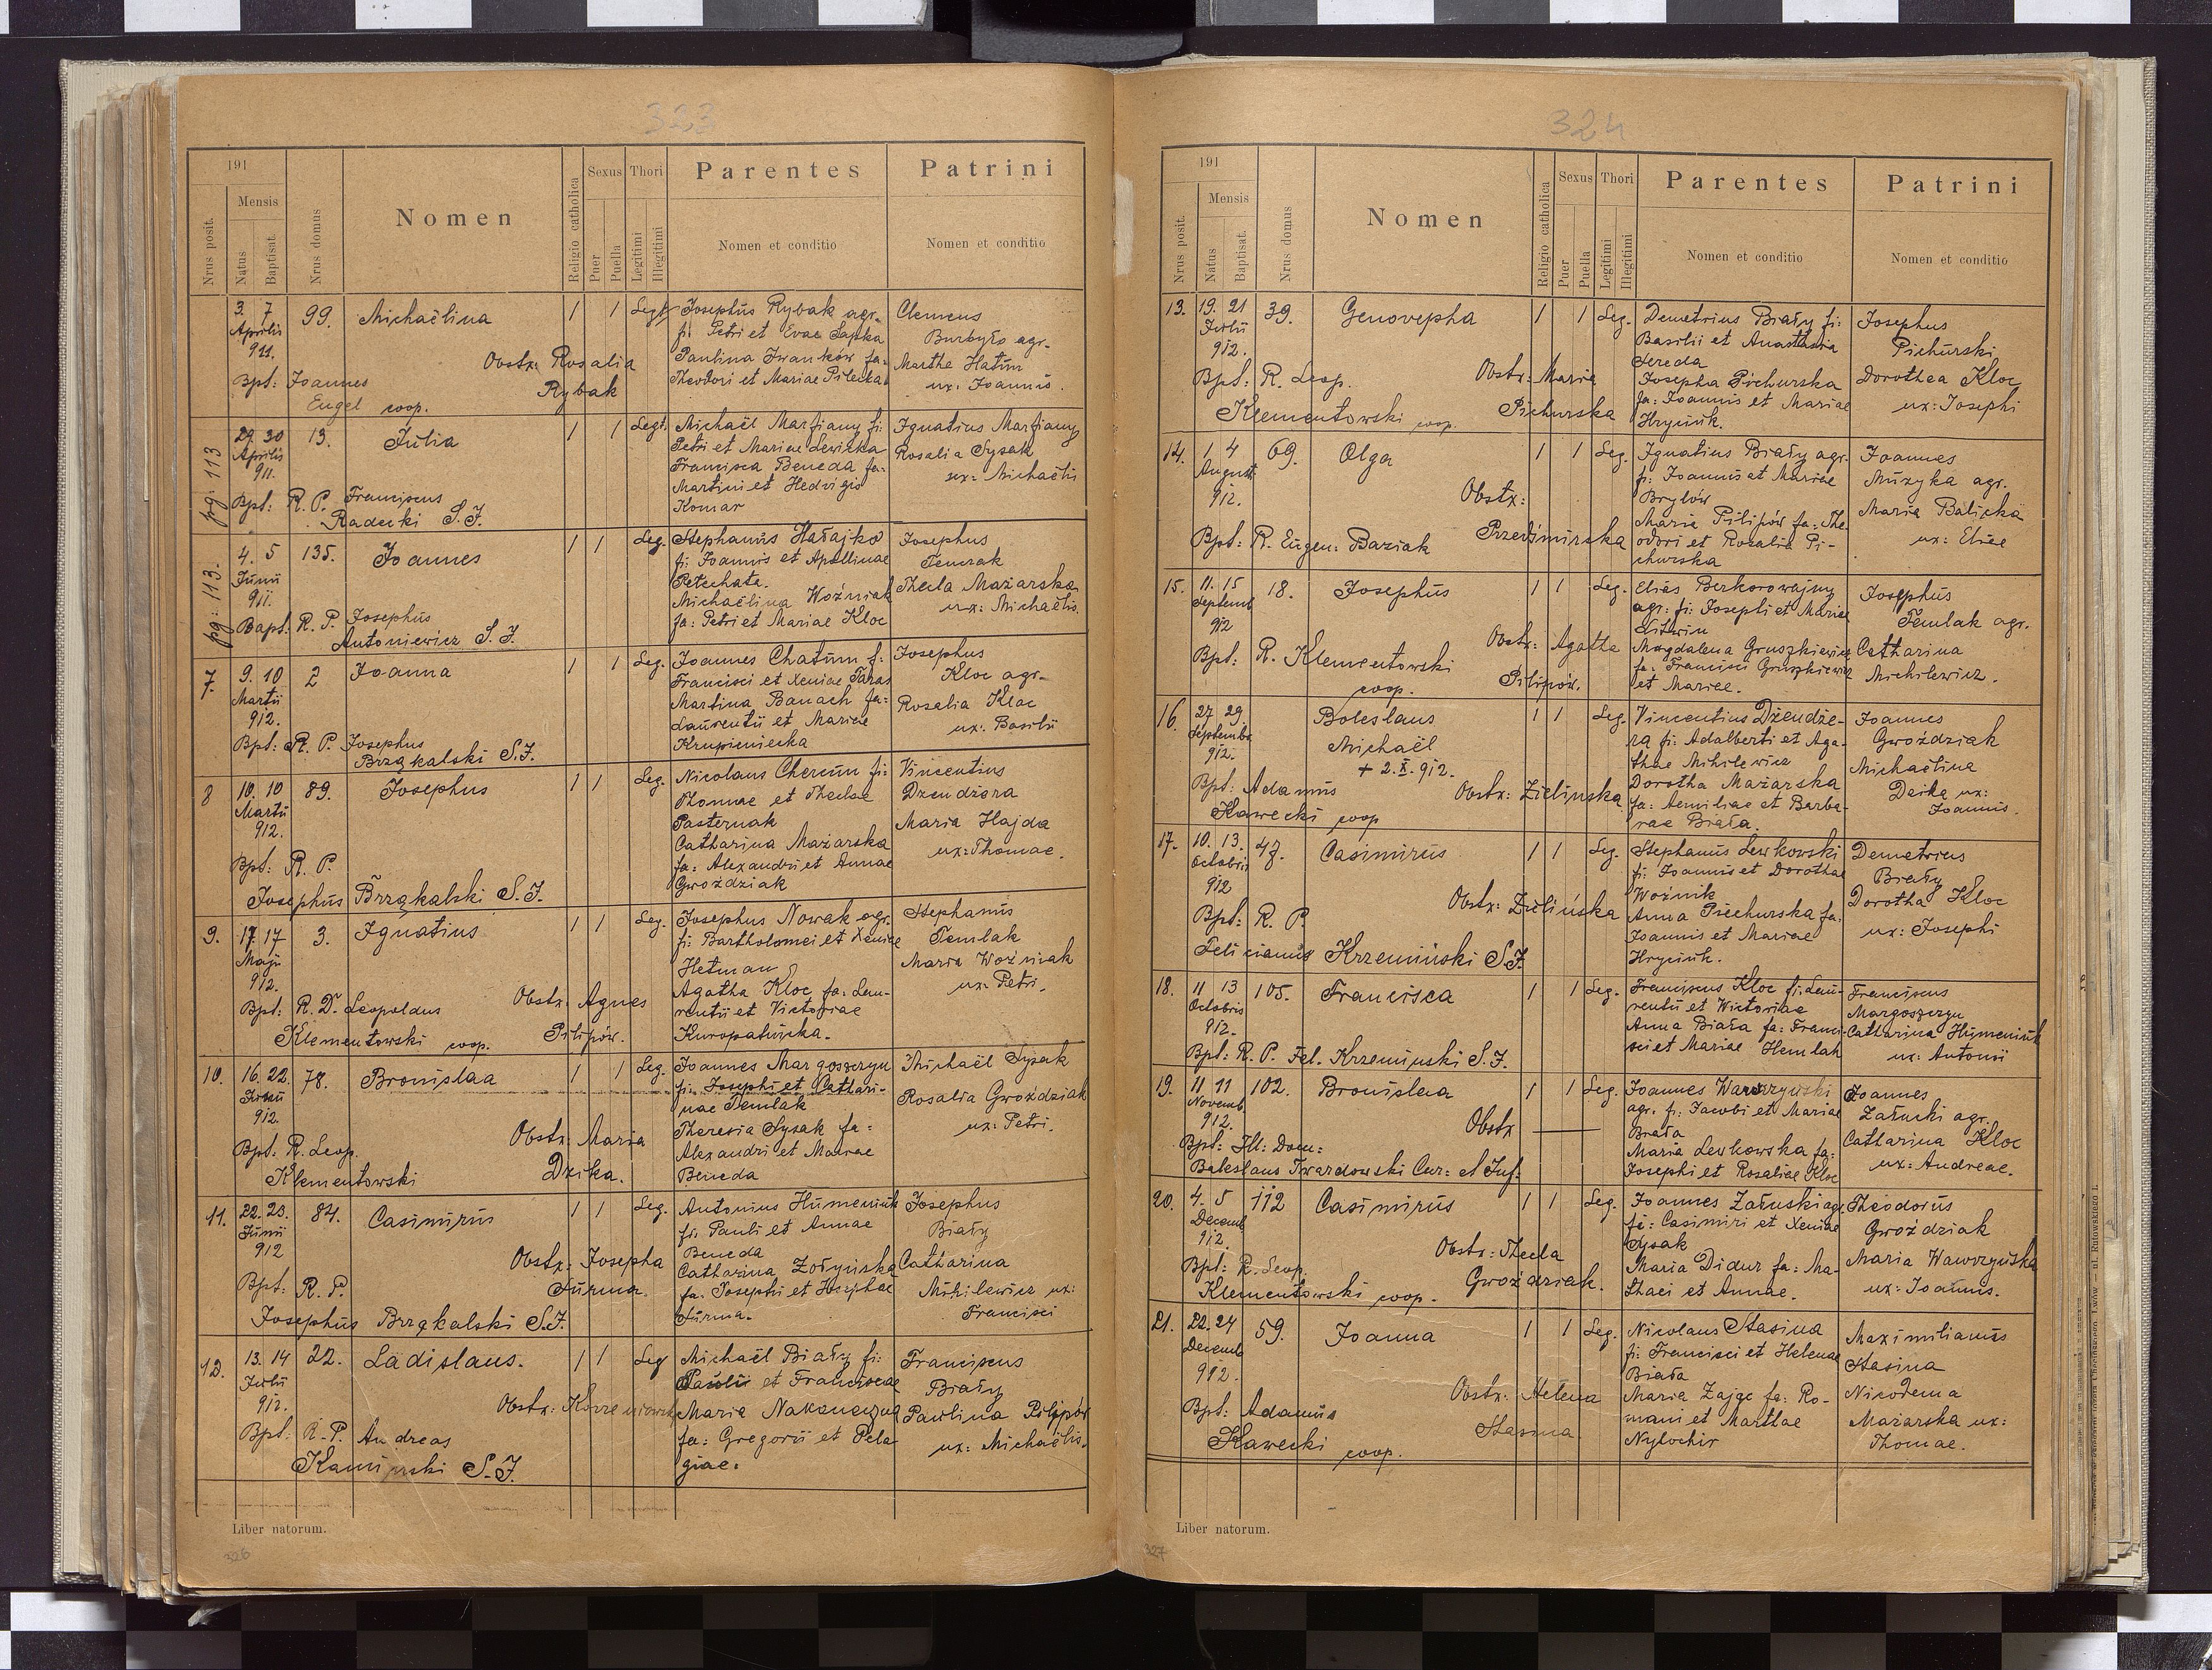 323
191
Nrus posit.
Mensis
Natus
Baptisat.
Nrus domus
Nomen
Religio catholica
Sexus
Puer
Puella
Thori
Legitimi
Illegitimi
Parentes
Nomen et conditio
Patrini
Nomen et conditio
3. 7
Aprilis
911.
99.
Michaëlina
1 1 Legt.
Bpt: Joannes
Engel coop.
Obstx: Rosalia
Rybak
Josephus Rybak agr.
fi: Petri et Evae Łapka
Paulina Iwanków fa:
Theodori et Mariae Pilecka
Clemens
Burbyło agr.
Martha Hatim
ux: Joannis.
pg: 113
29. 30
Aprilis
911.
13.
Julia
1 1 Legt.
Bpt: R. P. Franciscus
Radecki S. J.
Michaël Marfiany fi:
Petri et Mariae Lewicka
Francisca Beneda fa:
Martini et Hedvigis
Komar
Ignatius Marfiany
Rosalia Sysak
ux: Michaëlis
pg: 113.
4. 5
Junii
911.
135.
Joannes
1 1 Leg.
Bapt: R. P. Josephus
Antoniewicz S. J.
Stephanus Hałajko
fi: Joannis et Apollinae
Petechata.
Michaëlina Woźniak
fa: Petri et Mariae Kloc
Josephus
Temlak
Thecla Mażarska
ux: Michaëlis.
7.
9. 10
Martii
912.
2
Joanna
1 1 Leg.
Bpt: R. P. Josephus
Brząkalski S. J.
Joannes Chatim f:
Francisci et Xeniae Taras
Martina Banach fa:
Laurentii et Mariae
Krupieniecka
Josephus
Kloc agr.
Rosalia Kloc
ux: Basilii
8
10. 10
Martii
912.
89.
Josephus
1 1 Leg.
Bpt: R. P.
Josephus Brząkalski S. J.
Nicolaus Cherim fi:
Thomae et Theclae
Pasternak
Catharina Mażarska
fa: Alexandri et Annae
Gwoździak
Vincentius
Dzendzera
Maria Hajda
ux: Thomae.
9.
17. 17
Maji
912.
3.
Ignatius
1 1 Leg.
Bpt: R. D. Leopoldus
Klementowski coop.
Obstx: Agnes
Pilipów.
Josephus Nowak agr.
fi: Bartholomei et Xeniae
Hetman
Agatha Kloc fa: Lau-
rentii et Victoriae
Kuropatnicka.
Stephanus
Temlak
Maria Woźniak
ux: Petri.
10.
16. 22.
Junii
912.
78.
Bronislaa
1 1 Leg.
Bpt: R. Leop.
Klementowski
Obstx: Maria
Dzika.
Joannes Margoszczyn
fi: Josephi et Cathari-
nae Temlak
Theresia Sysak fa:
Alexandri et Mariae
Beneda
Michaël Sysak
Rosalia Gwoździak
ux: Petri.
11.
22. 23.
Junii
912
84.
Casimirus
1 1 Leg.
Bpt: R. P.
Josephus Brząkalski S. J.
Obstx: Josepha
Surma.
Antonius Humeniuk
fi: Pauli et Annae
Beneda
Catharina Zołyńska
fa: Josephi et Josephae
Surma.
Josephus
Biały
Catharina
Mihilewicz ux:
Francisci
12.
13. 14
Julii
912.
22.
Ladislaus.
1 1 Leg
Bpt: R. P. Andreas
Kamiński S. J.
Obstx:
Michaël Biały fi:
Paulii et Franciscae
Maria Nakoneczna
fa: Gregorii et Pela
giae.
Franciscus
Biały
Paulina Pilipów
ux: Michaëlis.
Liber natorum.
326
324
191
Nrus posit.
Mensis
Natus
Baptisat.
Nrus domus
Nomen
Religio catholica
Sexus
Puer
Puella
Thori
Legitimi
Illegitimi
Parentes
Nomen et conditio
Patrini
Nomen et conditio
13.
19. 21
Julii
912.
39.
Genovepha
1 1 Leg.
Bpt: R. Leop.
Klementowski coop.
Obstx: Maria
Pichurska
Demetrius Biały fi:
Basilii et Anastasia
Sereda
Josepha Pichurska
fa: Joannis et Mariae
Hryciuk.
Josephus
Pichurski
Dorothea Kloc
ux: Josephi
14.
1. 4
Augusti
912.
69.
Olga
1 1 Leg.
Bpt: R. Eugen: Baziak
Obstx:
Przedzimirska
Ignatius Biały agr.
fi: Joannis et Mariae
Brylów
Maria Pilipów fa: The
odori et Rozalia Pi-
churska
Joannes
Muzyka agr.
Maria Balicka
ux: Eliae
15.
11. 15
Septemb
912
18.
Josephus
1 1 Leg.
Bpt: R. Klementowski
coop.
Obstx: Agatha
Pilipów.
Elias Berkorowajny
agr: fi: Josephi et Mariae
Litwin
Magdalena Gruszkiewicz
fa: Francisci Gruszkiewicz
et Mariae.
Josephus
Temlak agr.
Catharina
Michilewicz.
16.
27. 29.
Septembr
912.
Boleslaus
Michaël
+ 2. X. 912.
1 1 Leg.
Bpt: Adamus
Kawecki coop
Obstx: Zielinska
Vincentius Dzendze-
ra fi: Adalberti et Aga-
thae Mihilewicz
Dorotha Mażarska
fa: Aemiliae et Barba-
rae Biała.
Joannes
Gwoździak
Michaëlina
Deika ux:
Joannis.
17.
10. 13.
Octobris
912
47.
Casimirus
1 1 Leg.
Bpt: R. P.
Felicianus Krzemiński S. J.
Obstx: Zielińska
Stephanus Lewkowski
fi: Joannis et Dorothae
Woźnik
Anna Piechurska fa:
Joannis et Mariae
Hryciuk.
Demetrius
Biały
Dorotha Kloc
ux: Josephi
18.
11 13
Octobris
912.
105.
Francisca
1 1 Leg.
Bpt: R. P. Fel. Krzemiński S. J.
Franciscus Kloc fi: Lau-
rentii et Wictoriae
Anna Biała fa: Franci-
sci et Mariae Hemlah
Franciscus
Margoszczyn
Catharina Humeniuk
ux: Antonii
19.
11 11
Novemb
912.
102.
Bronislaa
1 1 Leg.
Obstx —
Bpt: Ill: Dom:
Boleslaus Twardowski Cur: et Inf.
Joannes Wawrzyński
agr. fi: Jacobi et Mariae
Biała
Maria Lewkowska fa:
Josephi et Rosaliae Kloc
Joannes
Załucki agr.
Catharina Kloc
ux: Andreae.
20.
4. 5
Decemb
912.
112
Casimirus
1 1 Leg.
Bpt: R. Leop.
Klementowski coop.
Obstx: Thecla
Gwoździak.
Joannes Załuski agr.
fi: Casimiri et Xeniae
Sysak
Maria Didur fa: Ma-
thaei et Annae.
Theodorus
Gwoździak
Maria Wawrzyńska
ux: Joannis.
21.
22. 24
Decemb
912.
59.
Joanna
1 1 Leg.
Bpt: Adamus
Kawecki coop.
Obstx: Helena
Stasina.
Nicolaus Stasina
fi: Francisci et Helenae
Biała
Maria Zając fa: Ro-
mani et Marthae
Nylochir
Maximilianus
Stasina
Nicodema
Mażarska ux:
Thomae.
Liber natorum.
327